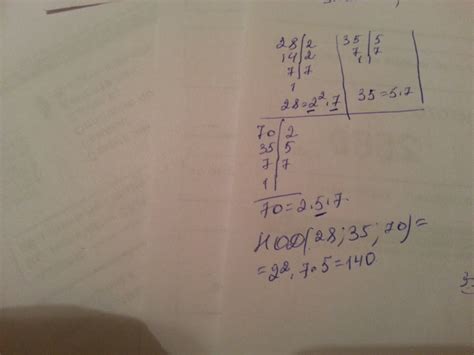 28|2
14|2
7|7
1
28=2².7
35|5
7|7
1
35=5.7
70|2
35|5
7|7
1
70=2.5.7.
НОД(28;35;70)=
=2².7.5=140